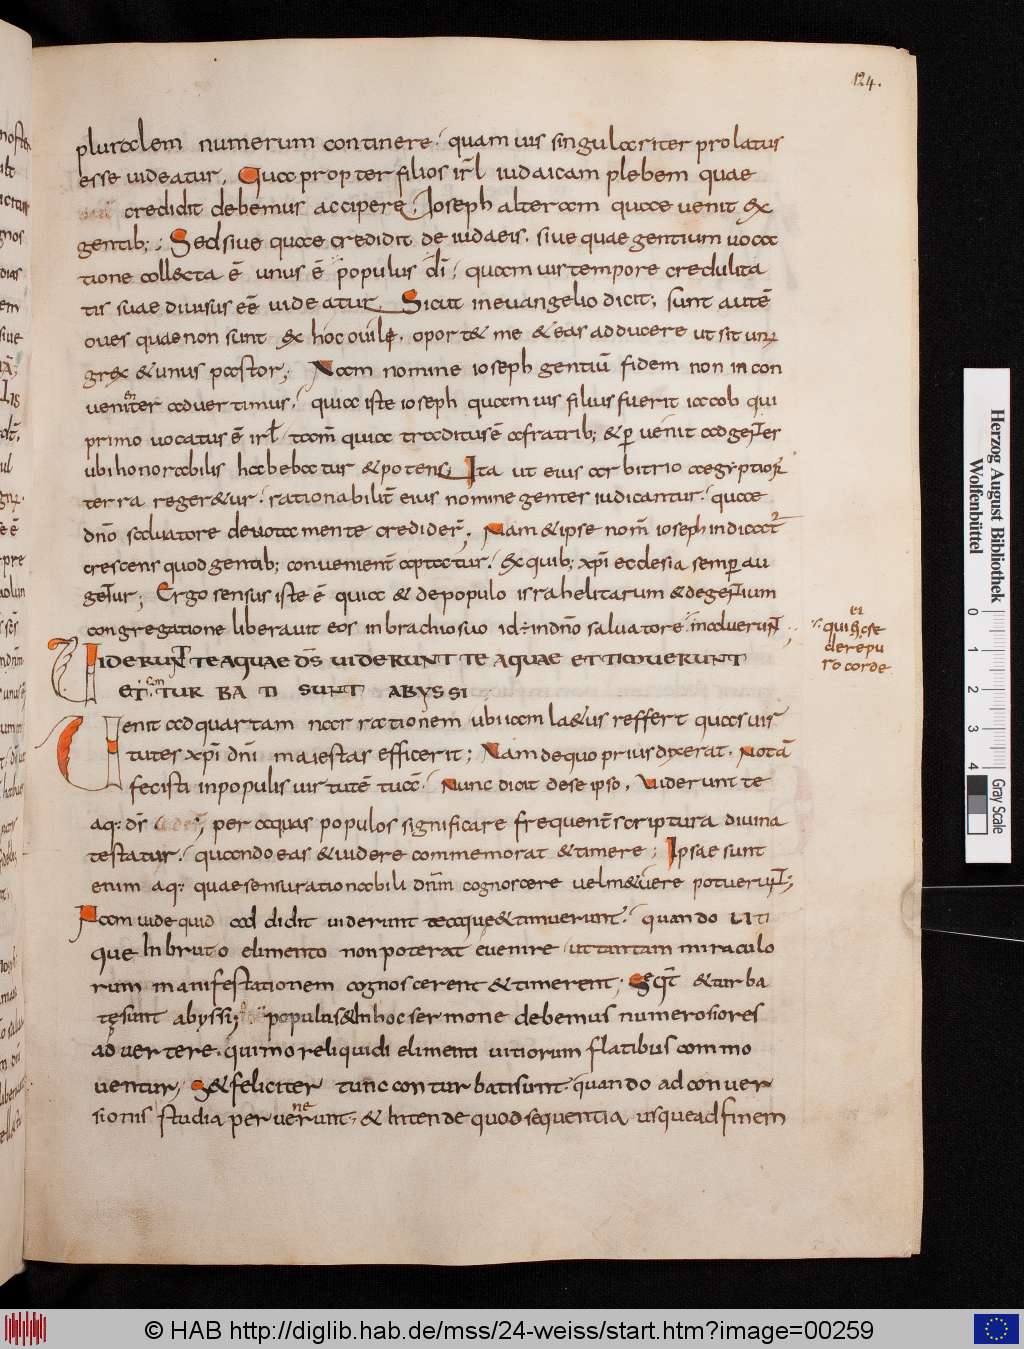 124.
pluralem numerum continere. quamvis singulariter prolatus
esse uideatur. Qua propter filios irl iudaicam plebem quae
credidit debemus accipere. Ioseph alteram quae uenit ex
gentib; Sed siue quae credidit de iudaeis. siue quae gentium uoca
tione collecta ē unus ē populus dī. quamuis tempore credulita
tis suae diuisus eē uideatur. Sicut in euangelio dicit; sunt autē
oues quae non sunt ex hoc ouile. oportet me & eas adducere ut sit unus
grex & unus pastor; Nam nomine ioseph gentiū fidem non incon
uenienter aduertimus. quia iste ioseph quamuis filius fuerit iacob qui
primo uocatus ē irl tam quia traditus ē a fratrib; & p uenit ad gentes
ubi honorabilis habebatur & potens; Ita ut eius arbitrio aegyptiorum
terra regeretur. rationabilit eius nomine gentes iudicantur. quae
dño saluatore deuota mente crediderunt; Nam & ipse nom ioseph indicat
crescens quod gentib; conuenient aptatur. Ex quib; xpi ecclesia semp au
getur; Ergo sensus iste ē quia & de populo israhelitarum & de gentium
congregatione liberauit eos in brachio suo id ÷ in dño saluatore in aduerunt
ei
qui hęse
derepu
ro corde
UIDERUNT TE AQUAE DS UIDERUNT TE AQUAE ET TIMUERUNT
ET CONTURBATI SUNT ABYSSI
Uenit ad quartam narrationem ubi iam latius reffert quas uir
tutes xpi dñi maiestas efficerit; Nam de quo prius dixerat. Notā
fecisti in populis uirtutē tuā. Nunc dicit de se ipso. Uiderunt te
aq: ds per aquas populos significare frequent scriptura diuina
testatur. quando eas & uidere commemorat & timere; Ipsae sunt
enim aq: quae sensu rationabili dñm cognoscere uel metuere potuerunt;
Nam uide quid addidit uiderunt te aque & timuerunt. quando UTI
que In bruto elimento non poterat euenire ut tantam miraculo
rum manifestationem cognoscerent & timerent; Seqt & turba
tę sunt abyssi; populus & In hoc sermone debemus numerosiores
aduertere. qui mo reliquidi elimenti uitiorum flatibus commo
uentur; S& feliciter tunc conturbati sunt. quando ad conuer
sionis studia peruenerunt. & Intende quod sequentia usque ad finem
Herzog August Bibliothek
Wolfenbüttel
0 1 2 3 4
Gray Scale
© HAB http://diglib.hab.de/mss/24-weiss/start.htm?image=00259